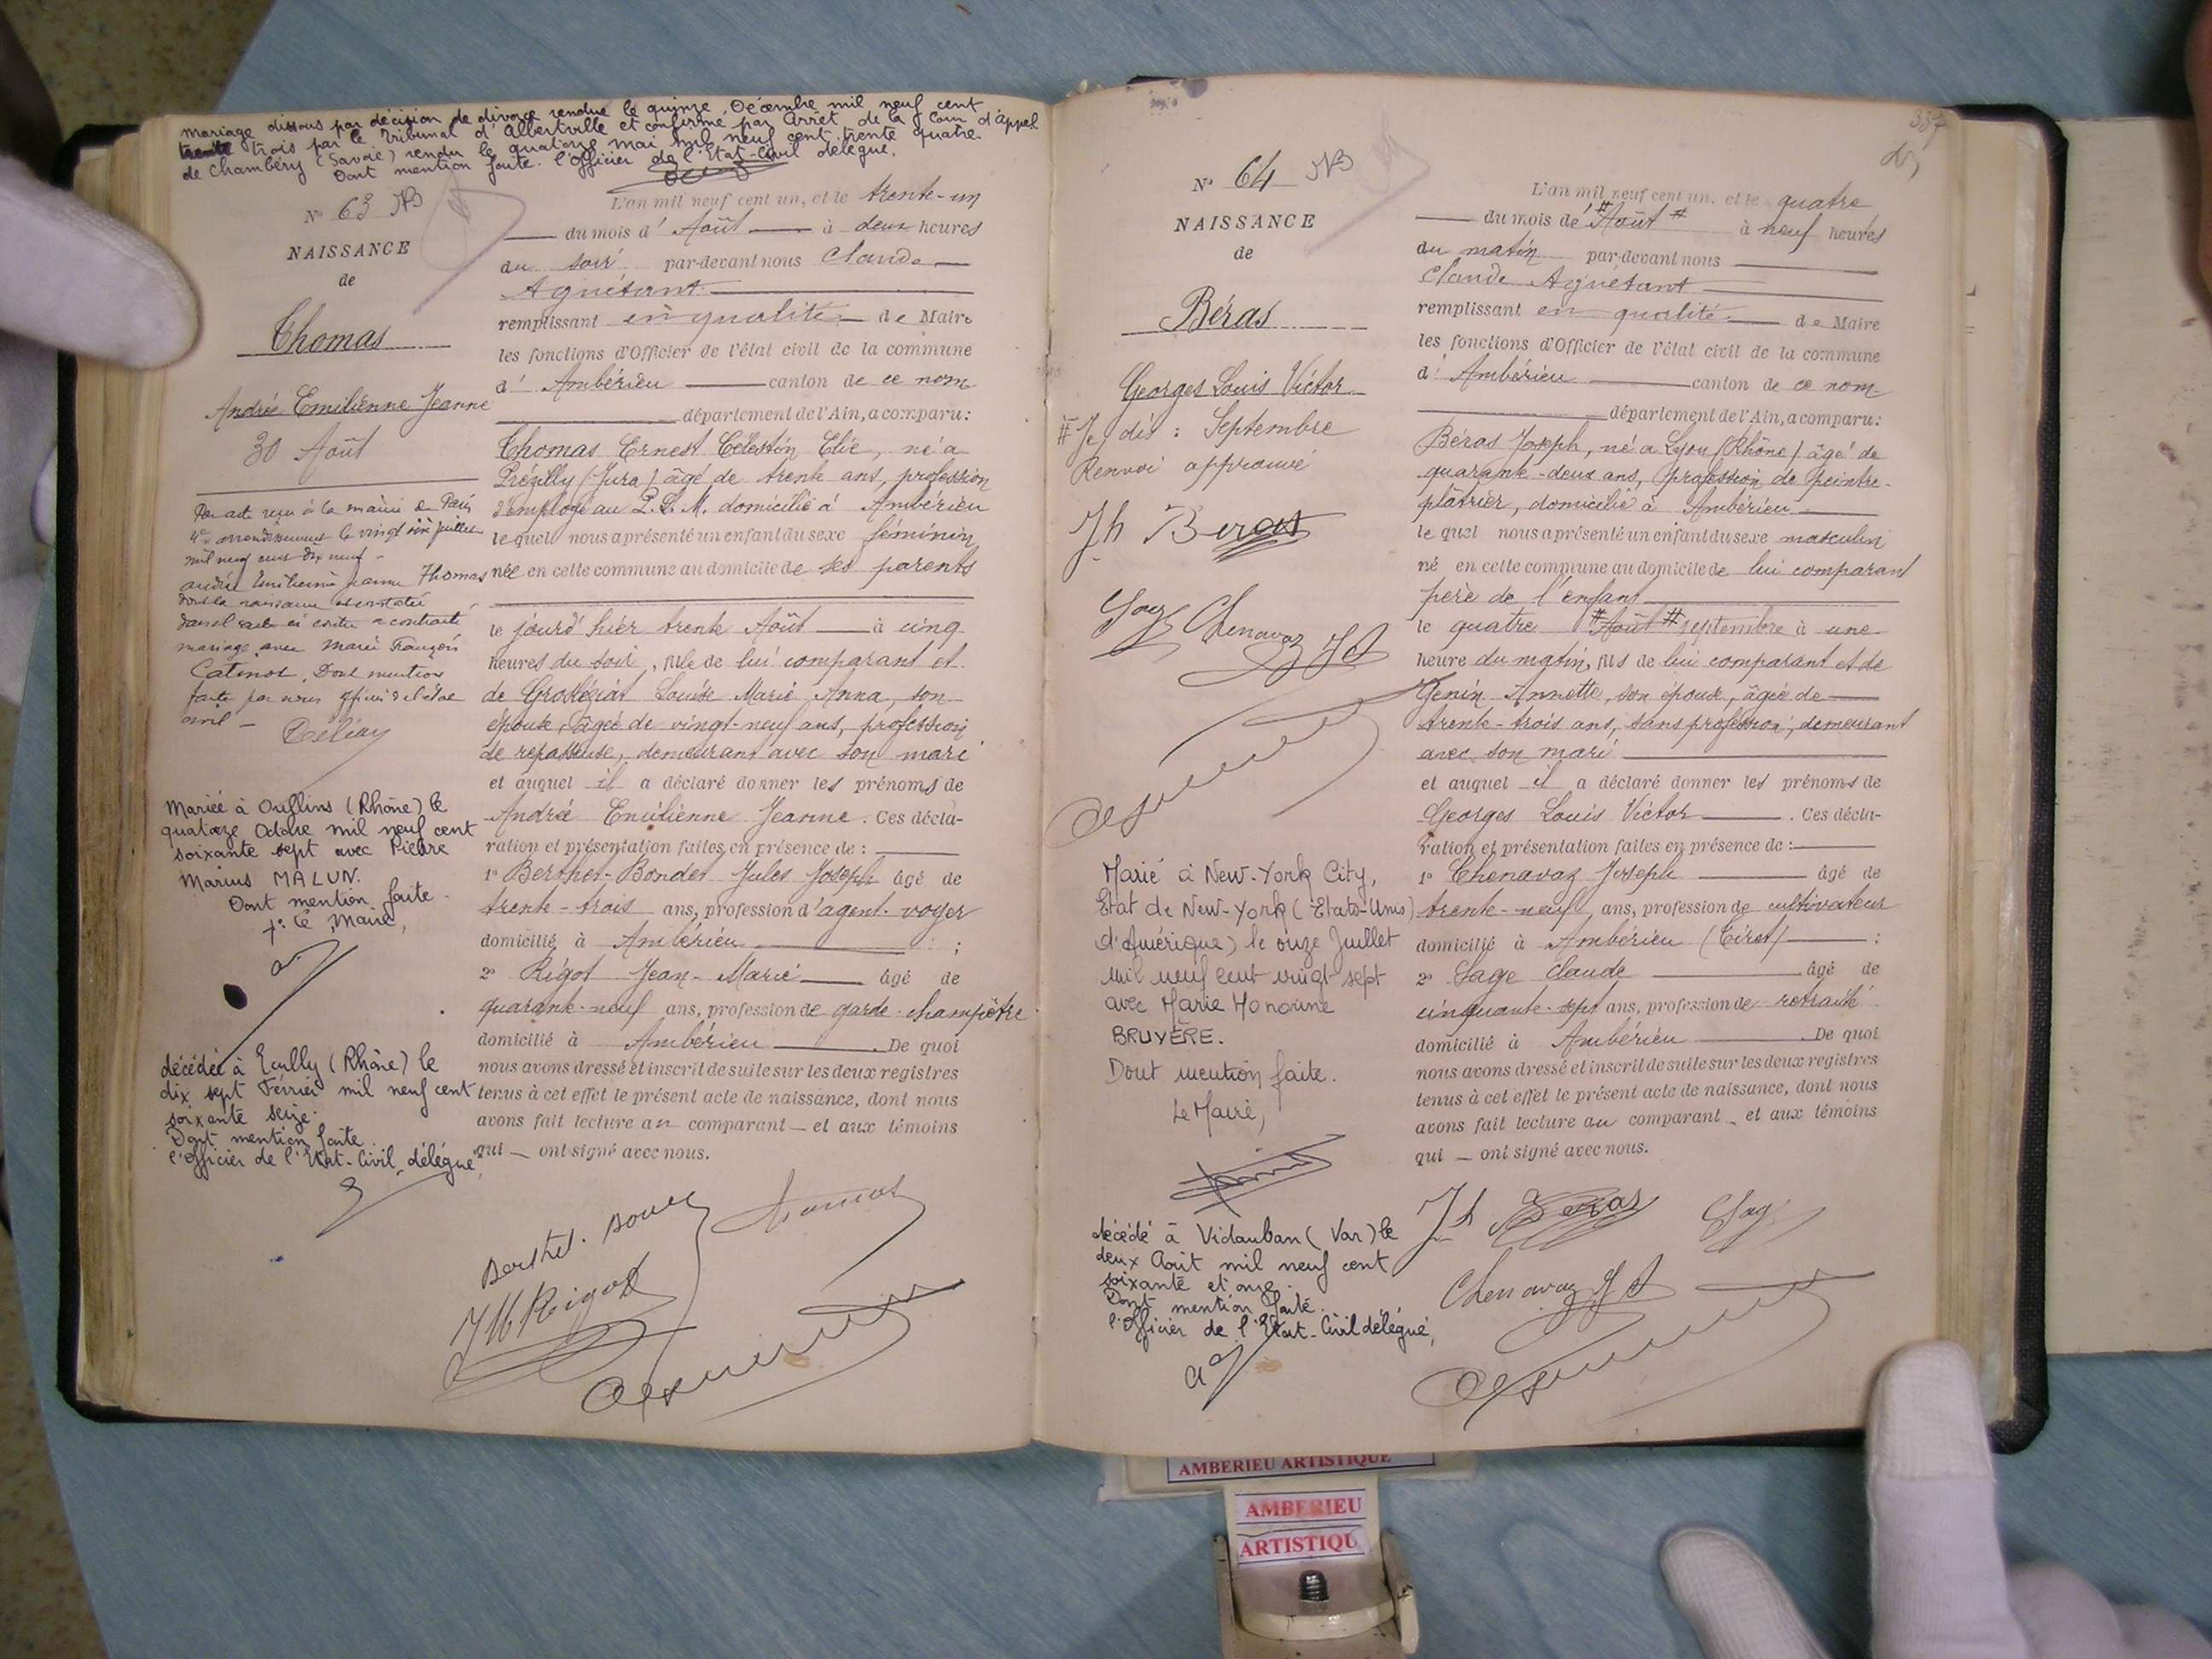 mariage dissous par décision de divorce rendue le quinze Décembre mil neuf cent
trente trois par le Tribunal d'Albertville et confirmé par Arrêt de la Cour d'Appel
de Chambéry (Savoie) rendu le quatorze mai mil neuf cent trente quatre.
Dont mention faite. l'Officier de l'Etat-Civil délégué.
N° 63
NAISSANCE
de
Thomas
Andrée Emilienne Jeanne
30 Août
Par acte reçu à la mairie de Paris
4e arrondissement le vingt six juillet
mil neuf cent dix neuf -
andrée Emilienne Jeanne Thomas
dont la naissance est constatée
dans l'acte ci contre a contracté
mariage avec Marie François
Catinot. Dont mention
faite par nous officier de l'état
civil -
Mariée à Oullins (Rhône) le
quatorze Octobre mil neuf cent
soixante sept avec Pierre
Marius MALUN.
Dont mention faite.
Pr Le Maire,
décédée à Ecully (Rhône) le
dix sept Février mil neuf cent
soixante seize.
Dont mention faite
l'Officier de l'Etat-Civil délégué,
L'an mil neuf cent un, et le trente-un
du mois d'Août à deux heures
du soir par-devant nous Claude
Agnétant
remplissant en qualité de Maire
les fonctions d'Officier de l'état civil de la commune
d'Ambérieu canton de ce nom
département de l'Ain, a comparu:
Thomas Ernest Célestin Elie, né à
Prézilly (Jura) âgé de trente ans, profession
d'employé au P.L.M. domicilié à Ambérieu
lequel nous a présenté un enfant du sexe féminin
née en cette commune au domicile de ses parents
le jourd'hier trente Août à cinq
heures du soir, fille de lui comparant et
de Louise Marie Anna, son
épouse, âgée de vingt-neuf ans, profession
de repasseuse, demeurant avec son mari
et auquel il a déclaré donner les prénoms de
Andrée Emilienne Jeanne. Ces décla-
ration et présentation faites en présence de :
1° Berthet-Bondet Jules Joseph âgé de
trente-trois ans, profession d'agent-voyer
domicilié à Ambérieu ;
2° Rigot Jean-Marie âgé de
quarante-neuf ans, profession de garde-champêtre
domicilié à Ambérieu De quoi
nous avons dressé et inscrit de suite sur les deux registres
tenus à cet effet le présent acte de naissance, dont nous
avons fait lecture au comparant et aux témoins
qui ont signé avec nous.
Berthet. Bondet
Thomas
JM Rigot
337
N° 64
NAISSANCE
de
Béras
Georges Louis Victor
# Je dis : Septembre
Renvoi approuvé
Jh Beras
Chenavaz
Marié à New-York City,
Etat de New-York (Etats-Unis
d'Amérique) le onze Juillet
mil neuf cent vingt sept
avec Marie Honorine
BRUYÈRE.
Dont mention faite.
Le Maire,
décédé à Vidauban (Var) le
deux Août mil neuf cent
soixante et onze.
Dont mention faite.
l'Officier de l'Etat-Civil délégué,
L'an mil neuf cent un, et le quatre
du mois de #Août# à neuf heures
du matin par-devant nous
Claude Agnétant
remplissant en qualité de Maire
les fonctions d'Officier de l'état civil de la commune
d'Ambérieu canton de ce nom
département de l'Ain, a comparu:
Béras Joseph, né à Lyon (Rhône) âgé de
quarante-deux ans, profession de peintre-
plâtrier, domicilié à Ambérieu
lequel nous a présenté un enfant du sexe masculin
né en cette commune au domicile de lui comparant
père de l'enfant
le quatre #Août# septembre à une
heure du matin, fils de lui comparant et de
Genin Annette, son épouse, âgée de
trente-trois ans, sans profession, demeurant
avec son mari
et auquel il a déclaré donner les prénoms de
Georges Louis Victor. Ces décla-
ration et présentation faites en présence de :
1° Chenavaz Joseph âgé de
trente-neuf ans, profession de cultivateur
domicilié à Ambérieu (Tiret) ;
2° Sage Claude âgé de
cinquante-sept ans, profession de retraité
domicilié à Ambérieu De quoi
nous avons dressé et inscrit de suite sur les deux registres
tenus à cet effet le présent acte de naissance, dont nous
avons fait lecture au comparant et aux témoins
qui ont signé avec nous.
Jh Beras
Chenavaz
AMBERIEU ARTISTIQUE
AMBERIEU
ARTISTIQU